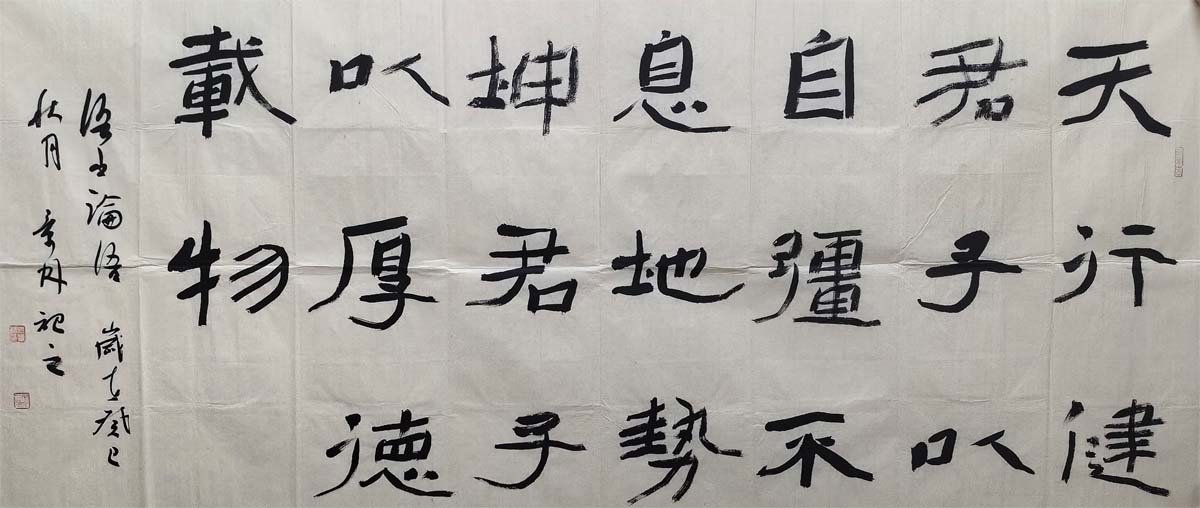 天行健
君子以
自彊不
息地勢
坤君子
以厚德
載物
語出論語 歲在癸巳
秋月 記之